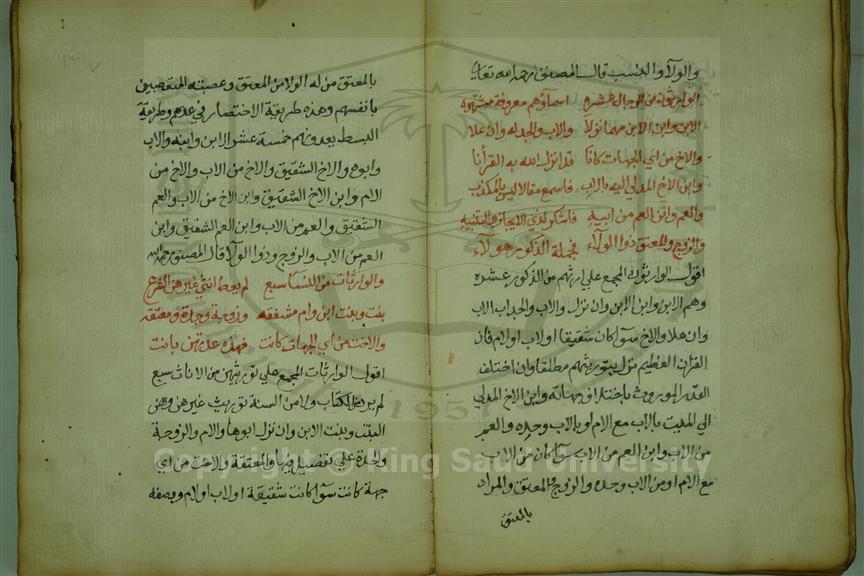 والولاء والنسب قال المصنف رحمه الله تعالى
الوارثون من الرجال عشره اسماؤهم معروفة مشتهره
الابن وابن الابن مهما نزلا والاب والجد له وان علا
والاخ من اي الجهات كانا قد انزل الله به القرأنا
وابن الاخ المدلي اليه بالاب فاسمع مقالا ليس بالمكذب
والعم وابن العم من ابيه فاشكر لذي الايجاز والتنبيه
والزوج والمعتق ذوا لولاء فجملة الذكور هولاء
اقول الوارثون المجمع علي ارثهم من الذكور عشره
وهم الابن وابن الابن وان نزل والاب والجد اب الاب
وان علا والاخ سوآ كان شقيقا او لاب او لام فان
القران العظيم نزل بتوريثهم مطلقا وان اختلف
القدر الموروث باختلاف جهاته وابن الاخ المدلي
الي الميت بالاب مع الام او بالاب وحده والعم
من الاب وابن العم من الاب سوآ كان من الاب
مع الام او من الاب وحده والزوج والمعتق والمراد
بالمعتق
بالمعتق من له الولا من المعتق وعصبته المتعصبين
بانفسهم وهذه طريقة الاختصار في عدهم وطريقة
البسط يعدونهم خمسة عشر الابن وابنه والاب
وابوه والاخ الشقيق والاخ من الاب والاخ من
الام وابن الاخ الشقيق وابن الاخ من الاب والعم
الشقيق والعم من الاب وابن العم الشقيق وابن
العم من الاب والزوج وذوا الولاء قال المصنف رحمه الله
والوارثات من النسآ سبع لم يعط انثي غيرهن الشرع
بنت وبنت ابن وام مشفقه وزوجة وجدة ومعتقه
والاخت من اي الجهات كانت فهذه عدتهن بانت
اقول الوارثات المجمع علي توريثهن من الاناث سبع
لم يرد في الكتاب ولا من السنة توريث غيرهن وهن
البنت وبنت الابن وان نزل ابوها والام والزوجة
والجدة علي تفصيل فيها والمعتقة والاخت من اي
جهة كانت سوآ كانت شقيقة او لاب او لام وبصفه
1951
Copyright © King Saud University